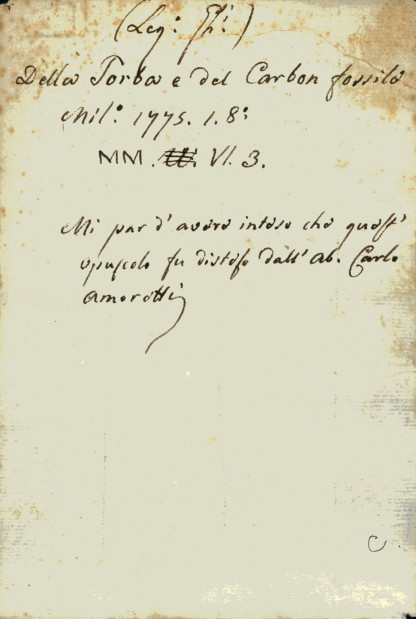 (Leg: Gh:)
Della Torba e del Carbon fossile
Mil: 1775. 1. 8:
MM. VI. 3.
Mi par d'avere inteso che quest'
opuscolo fu disteso dall' ab. Carlo
Amoretti
C.